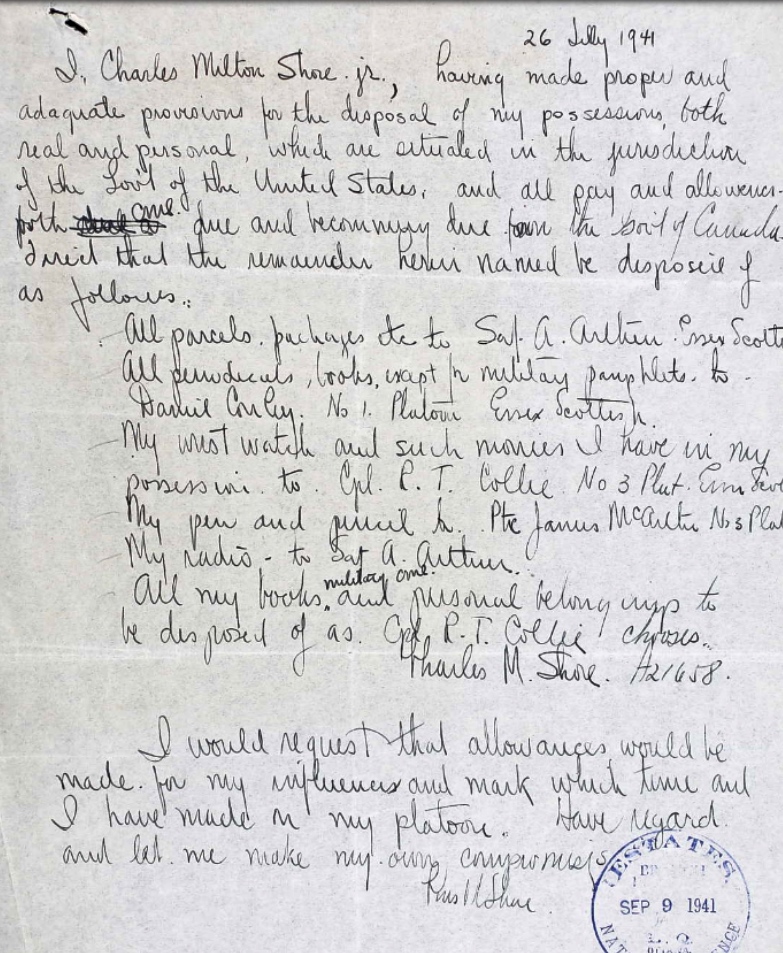 26 July 1941
I, Charles Milton Shore jr., having made proper and
adaquate provisions for the disposal of my possessions, both
real and personal, which are situated in the jurisdiction
of the Gov't of the United States, and all pay and allowences
both due and becomming due from the Gov't of Canada.
direct that the remainder herin named be disposeie of
as follows..
All parcels. packages etc to Sgt. A. Arthur. Essex Scotti
All periodicals, books, except for military pamphlets. to -
Conley. No 1. Platoon Essex Scottish.
My wrist watch and such monies I have in my
possession. to. Cpl. R. T. Collie. No 3 Plat.
My pen and pencil to. Pte James McArthur No 3 Plat
My radio - to Sgt A. Arthur.
military
All my books, and personal belongings to
be disposed of as. Cpl. R. T. Collie chooses..
Charles M. Shore. A21658.
I would request that allowances would be
made. for my influences and mark which time and
I have made on my platoon. Have regard
and let me make my own compromisis
Shore.
ESTATES
SEP 9 1941